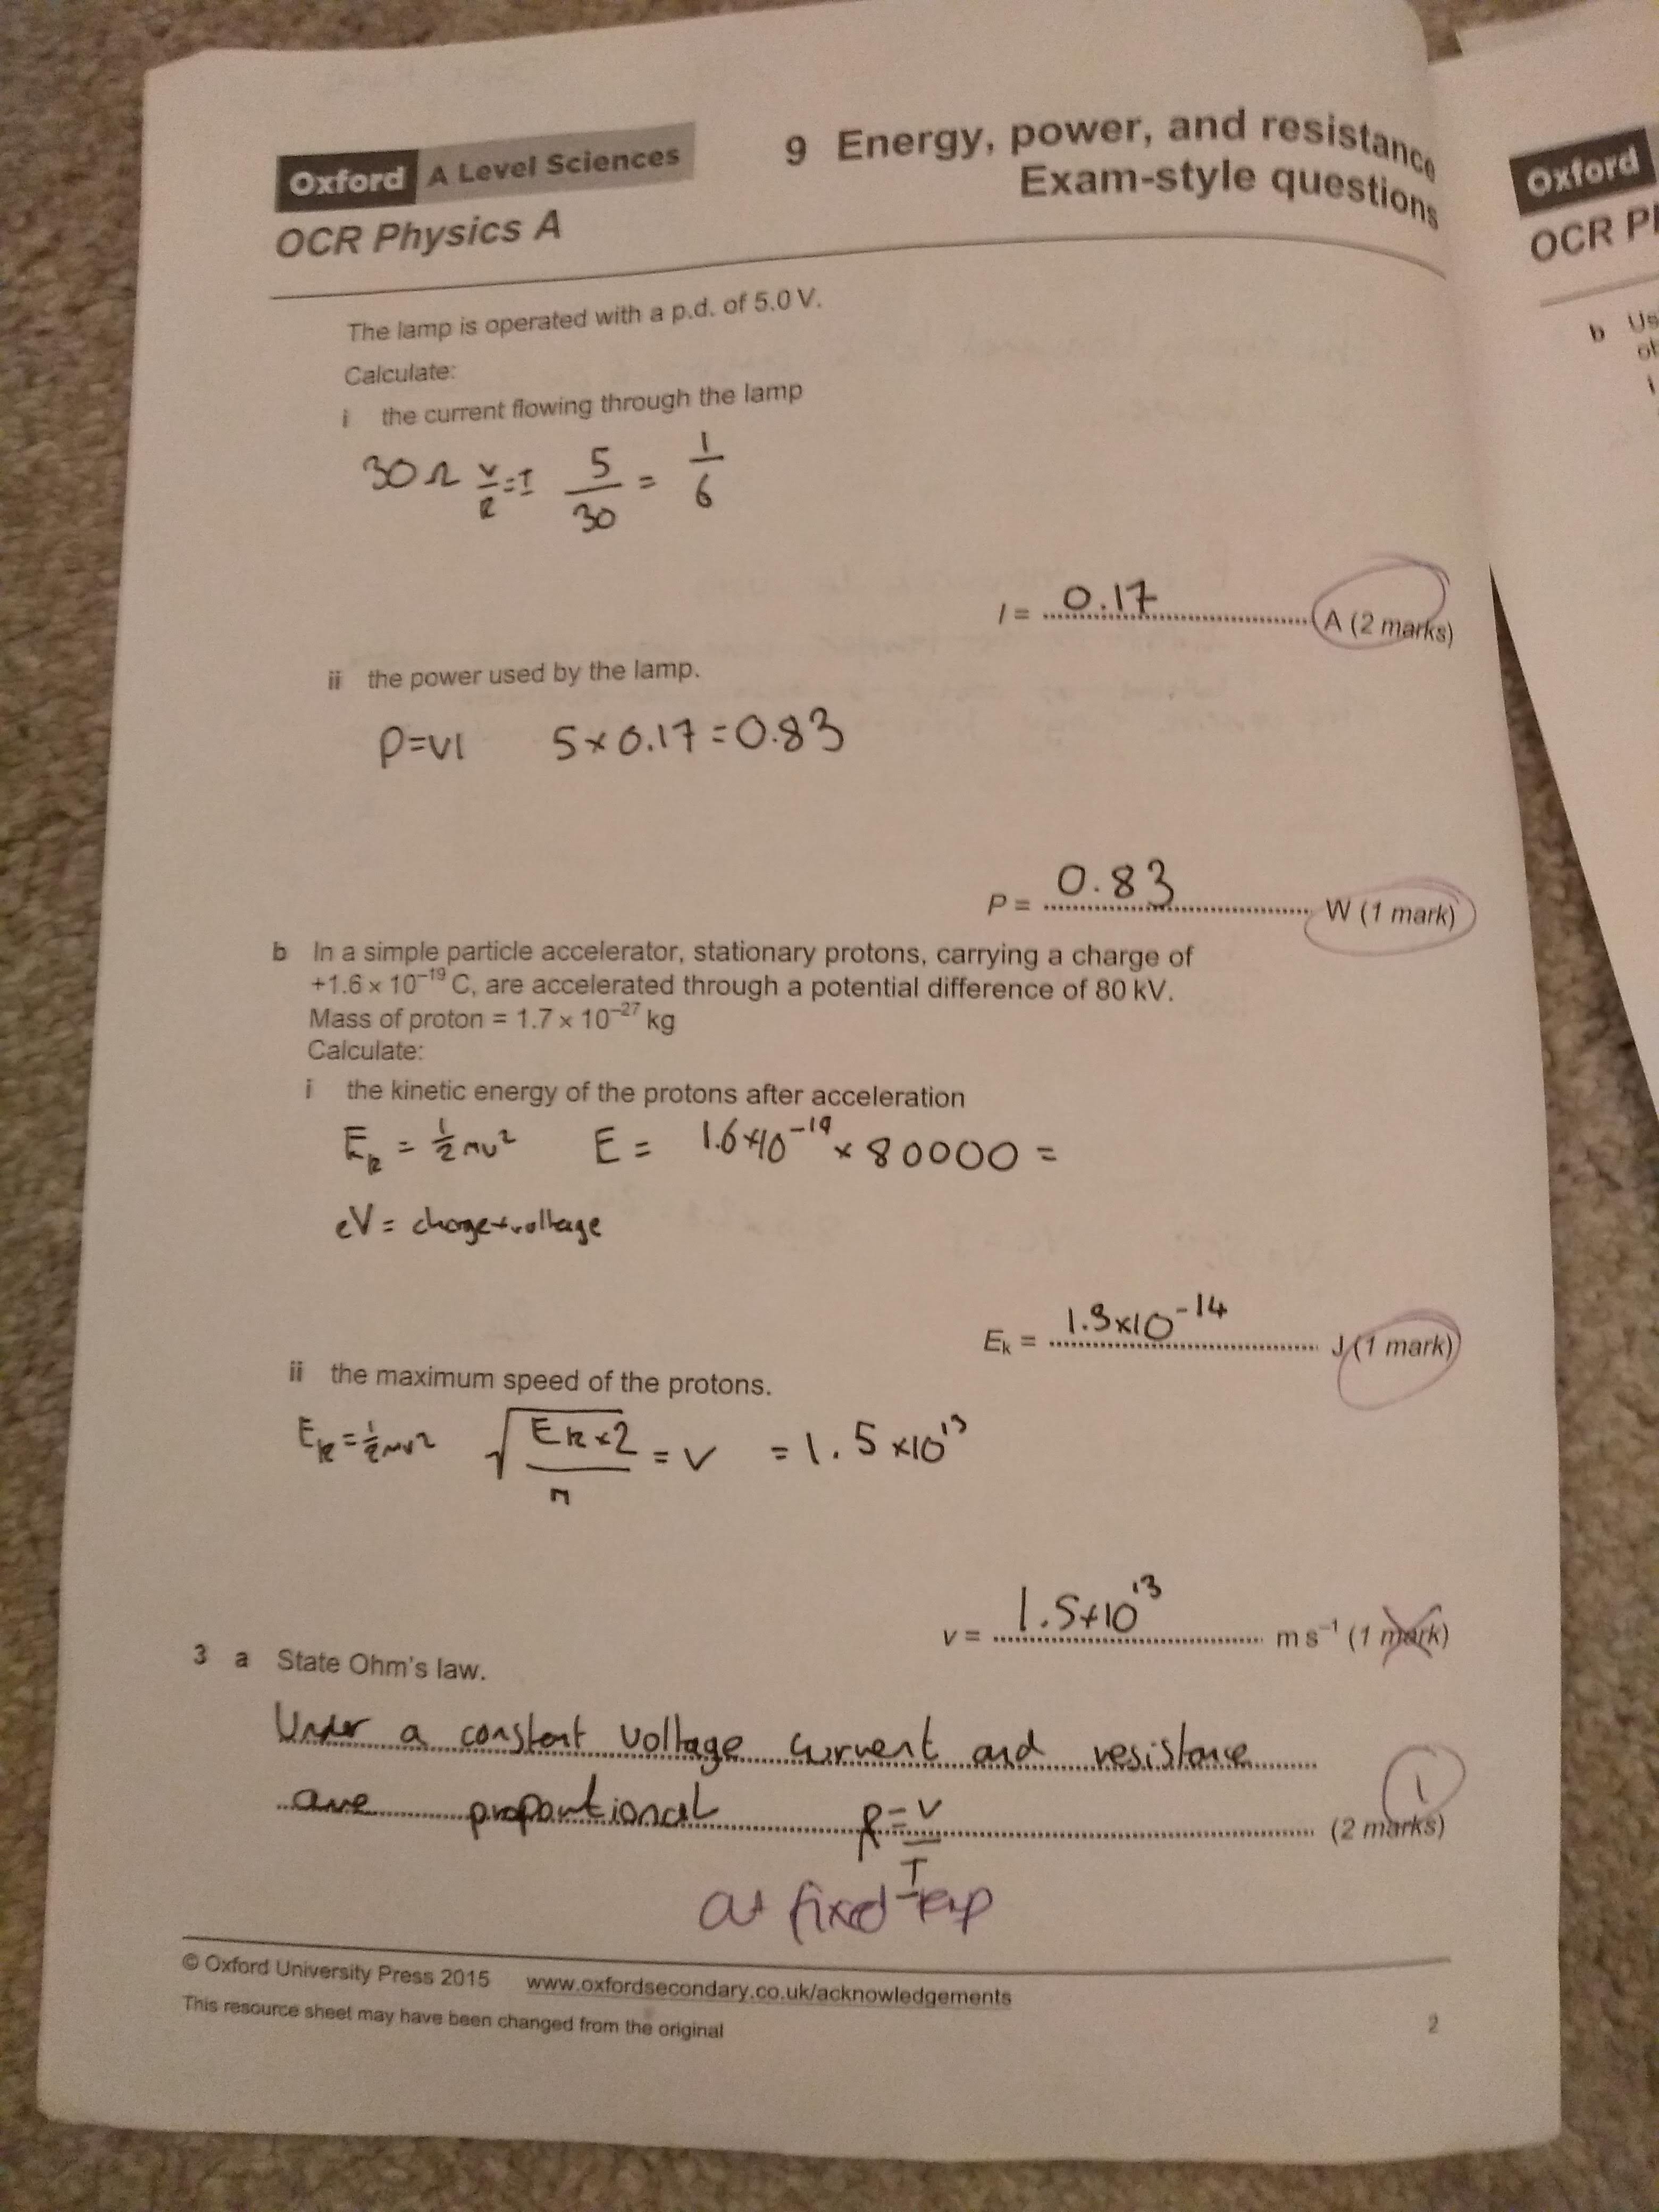 Oxford A Level Sciences
OCR Physics A
9 Energy, power, and resistance
Exam-style questions
The lamp is operated with a p.d. of 5.0 V.
Calculate:
i the current flowing through the lamp
30Ω V/R=I 5/30 = 1/6
I = 0.17 A (2 marks)
ii the power used by the lamp.
P=VI 5×0.17=0.83
P = 0.83 W (1 mark)
b In a simple particle accelerator, stationary protons, carrying a charge of
+1.6 × 10⁻¹⁹ C, are accelerated through a potential difference of 80 kV.
Mass of proton = 1.7 × 10⁻²⁷ kg
Calculate:
i the kinetic energy of the protons after acceleration
Ek = ½mv² E = 1.6×10⁻¹⁹ × 80000 =
eV = charge×voltage
Ek = 1.3×10⁻¹⁴ J (1 mark)
ii the maximum speed of the protons.
Ek=½mv² √(Ek×2/m) = v = 1.5×10¹³
v = 1.5×10¹³ m s⁻¹ (1 mark)
3 a State Ohm's law.
Under a constant voltage current and resistance
are proportional R=V/I (2 marks)
1
at fixed temp
© Oxford University Press 2015 www.oxfordsecondary.co.uk/acknowledgements
This resource sheet may have been changed from the original
2
Oxford
OCR
b Us
i